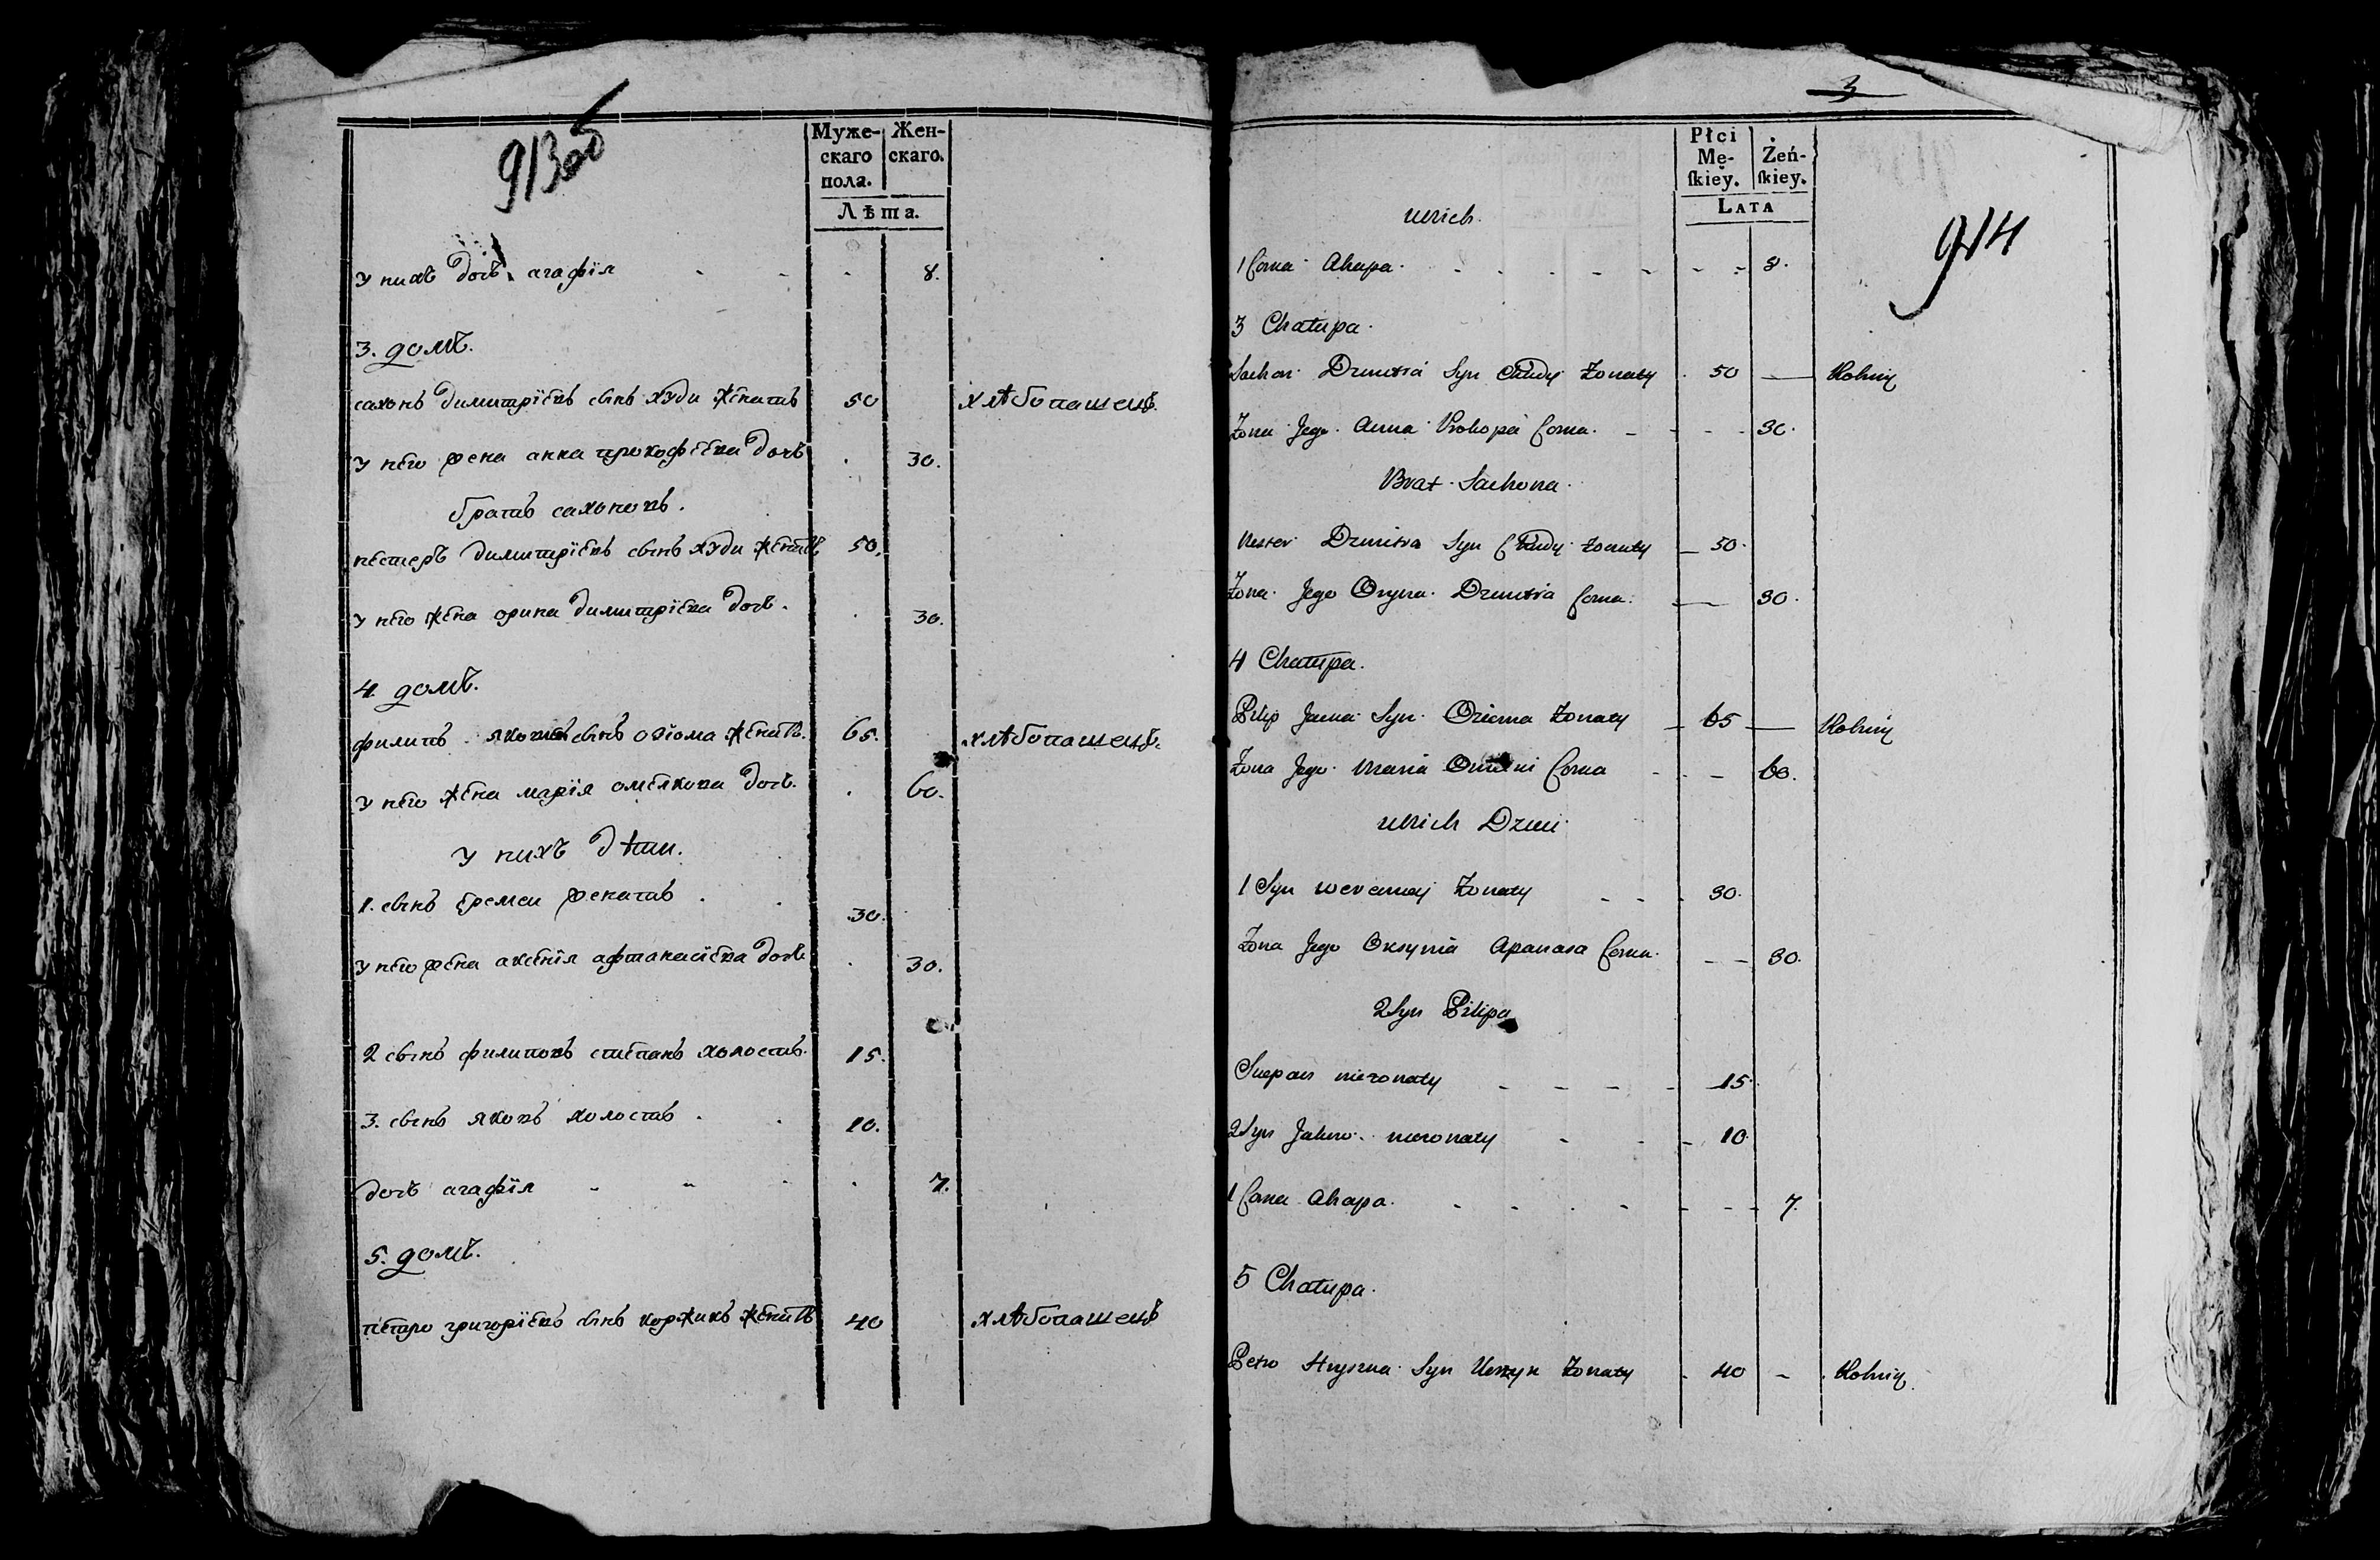 913об
Муже-
скаго
пола.
Жен-
скаго.
Лѣта.
У нихъ дочь агафїя 8.
3. домъ.
сахонъ димитрїевъ сынъ худи женатъ 50 хлѣбопашецъ.
У него жена анна прокофїева дочь 30.
братъ сахоновъ.
нестеръ димитрїевъ сынъ худи женатъ 50.
У него жена орина димитрїева дочь. 30.
4. домъ.
филипъ яковлевъ сынъ озїома женатъ. 65. хлѣбопашецъ.
У него жена марїя омелкова дочь. 60.
У нихъ дѣти.
1. сынъ еремеи женатъ 30.
У него жена аксенїя афтанасїева дочь 30.
2 сынъ филиповъ степанъ холостъ. 15.
3. сынъ яковъ холостъ 10.
дочь агафїя 7.
5. домъ.
петро григорїевъ сынъ коржикъ женатъ 40 хлѣбопашецъ
3
914
Płci
Mę-
skiey.
Żeń-
skiey.
LATA
U nich
1 Corna Ahapa 8.
3 Chałupa.
Sachon Dzmitra Syn Chudy Zonaty 50 — Rolnik
Zona Jego Anna Prokopa Corna 30.
Brat Sachona.
Nester Dzmitra Syn Chudy Zonaty 50.
Zona Jego Oryna Dzmitra Corna 30.
4 Chałupa.
Pilip Syn Oziema Zonaty 65 — Rolnik
Zona Jego Maria Corna 60.
U nich Dzieci
1 Syn Zonaty 30.
Zona Jego Oksynia Apanasa Corna 30.
2 Syn Pilipa
Stepan niezonaty 15.
2 Syn Jakow niezonaty 10
1 Corna Ahapa 7.
5 Chałupa.
Petro Hryszna Syn Korzyk Zonaty 40 - Rolnik